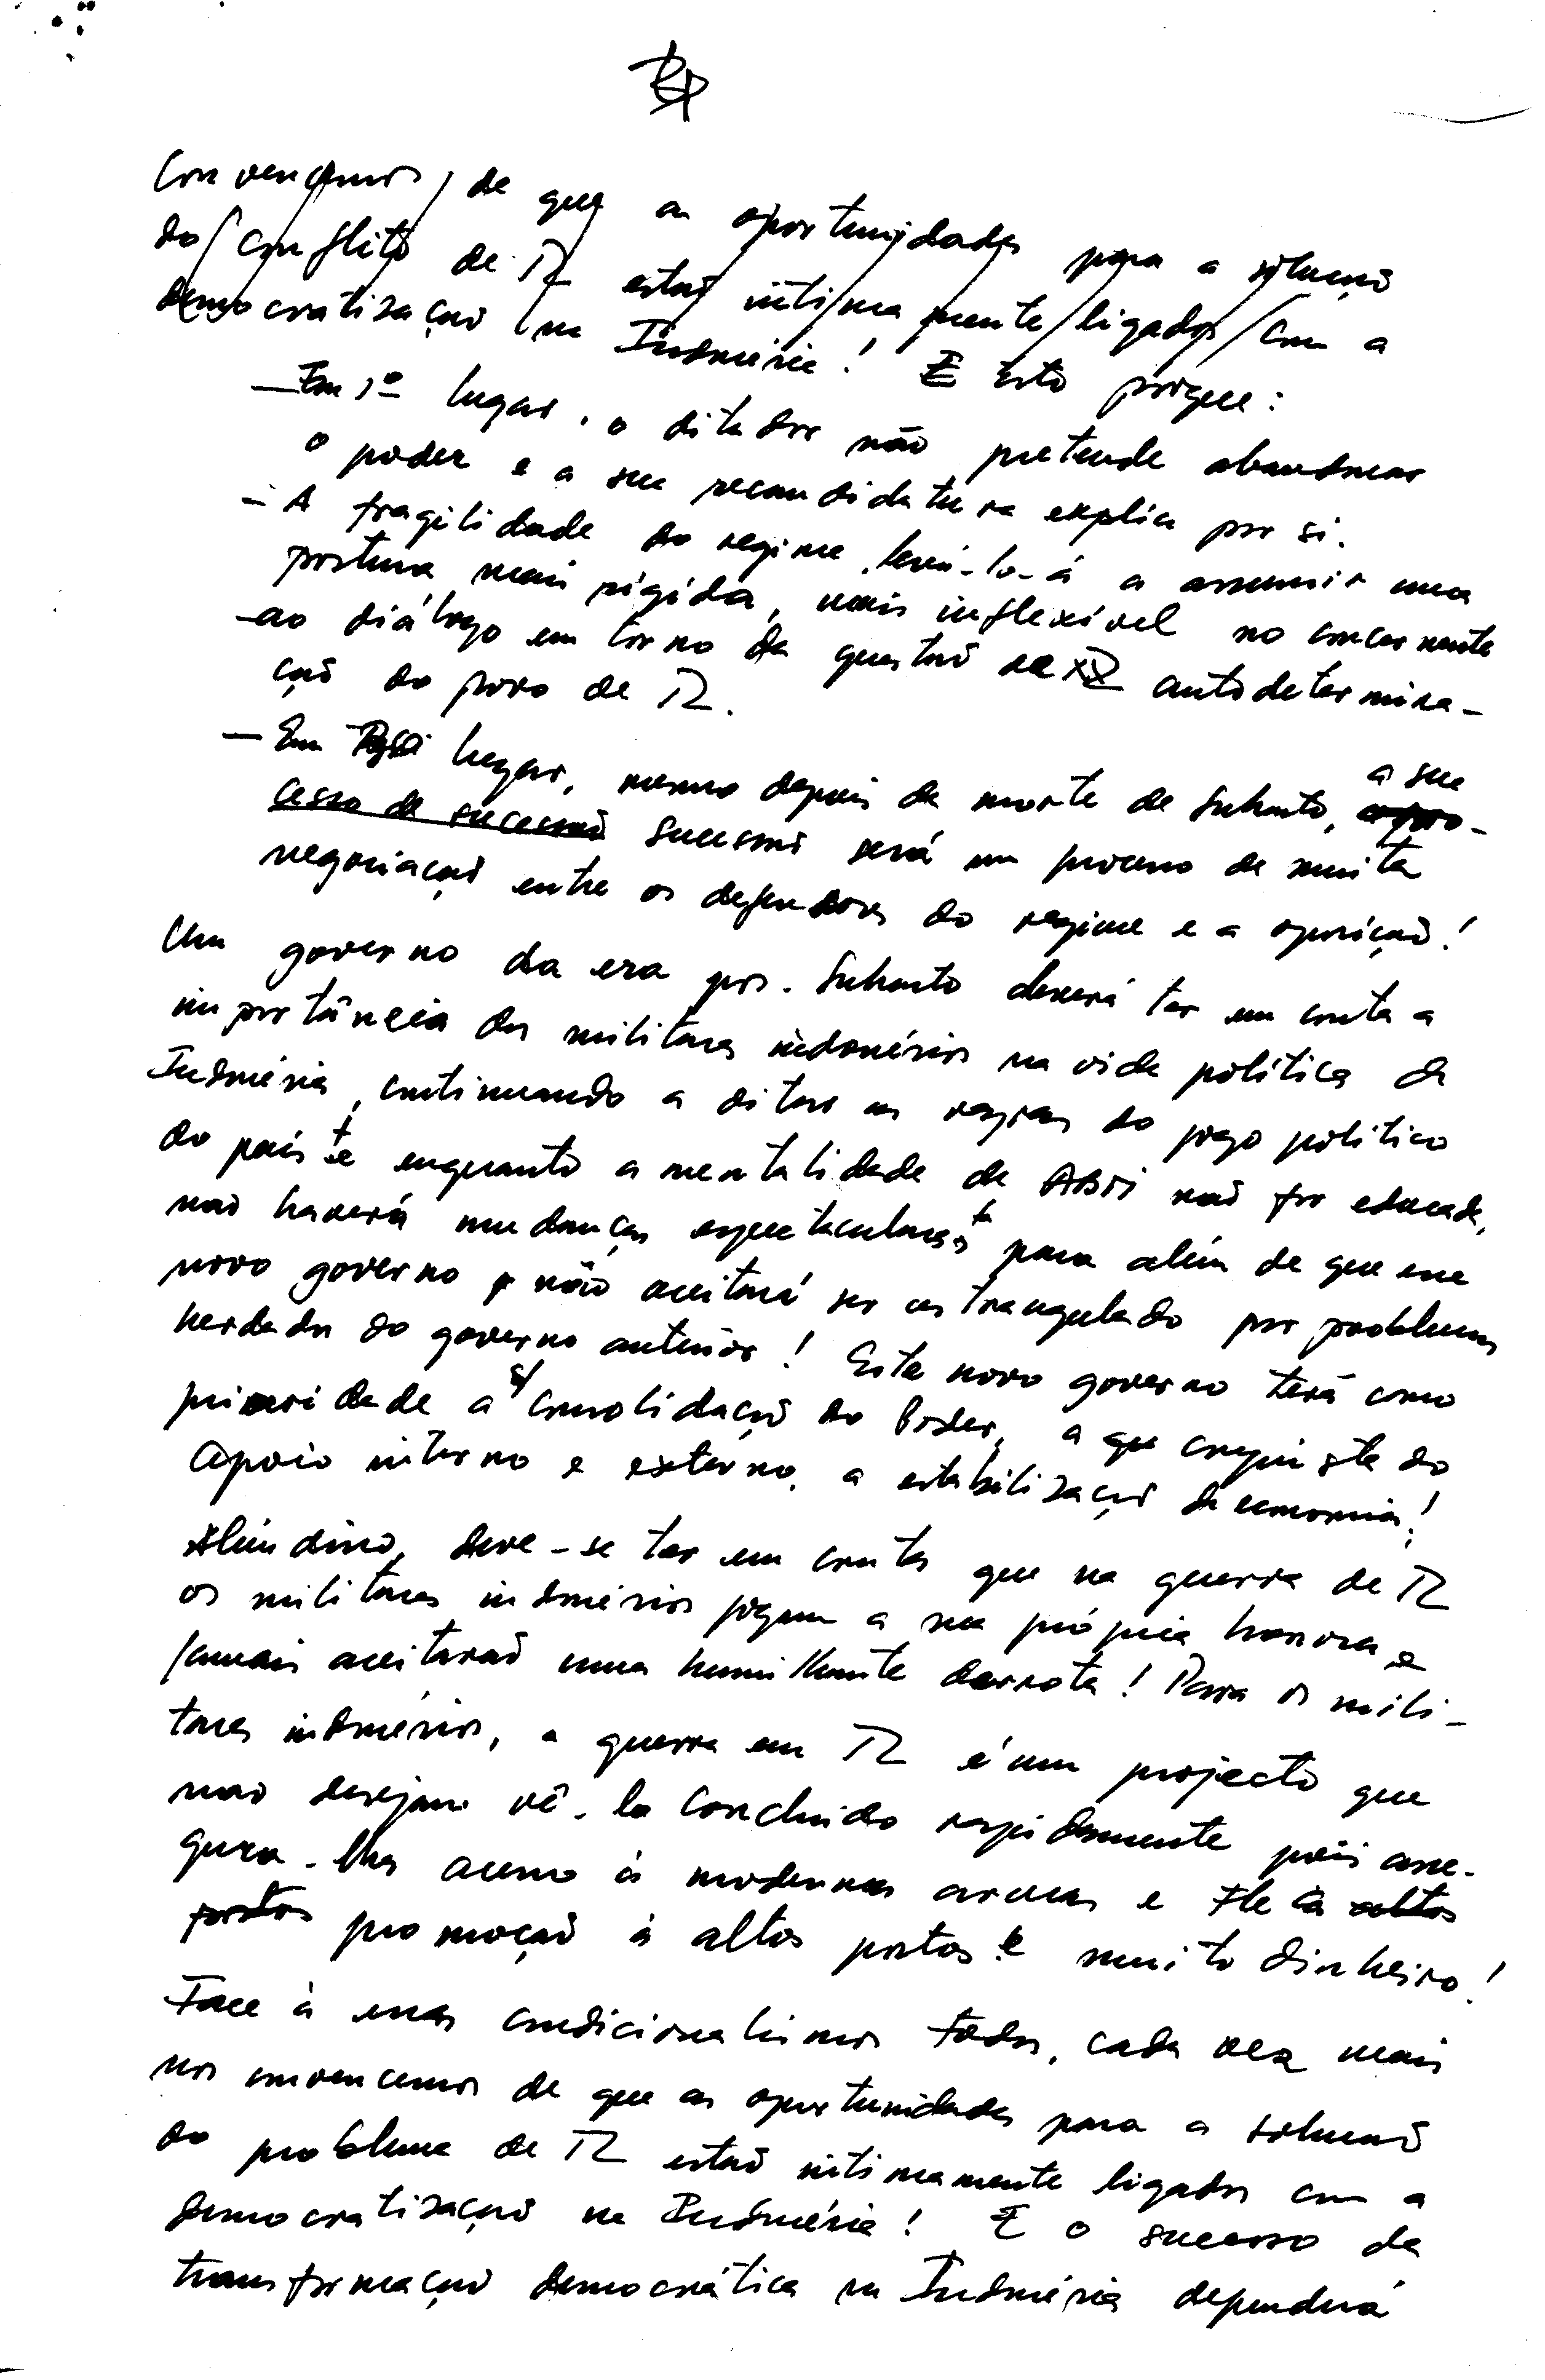 convencemos de que as oportunidades para a solução
do conflito de TL estão intimamente ligadas com a
democratização na Indonésia! E isto porque:
— Em 1º lugar, o ditador não pretende abandonar
o poder e a sua recandidatura explica por si.
- A fragilidade do regime levá-lo-á a assumir uma
postura mais rígida, mais inflexível no concernente
ao diálogo em torno da questão de autodetermina-
ção do povo de TL.
— Em lugar, mesmo depois da morte de Suharto, a sua o pro-
cesso de sucessão sucessão será um processo de muita
negociação entre os defensores do regime e a oposição!
Um governo da era pos-Suharto deverá ter em conta a
importância dos militares indonésios na vida política da
Indonésia, continuando a ditar as regras do jogo político
do país e enquanto a mentalidade da ABRI não for educada,
não haverá mudanças espectaculares para além de que esse
novo governo não aceitará ser estrangulado por problemas
herdados do governo anterior! Este novo governo terá como
prioridade a consolidação do Poder, a conquista do
apoio interno e externo, a estabilização da economia!
Além disso, deve-se ter em conta que na guerra de TL
os militares indonésios jogam a sua própria honra e
jamais aceitarão uma humilhante derrota! Para os mili-
tares indonésios, a guerra em TL é um projecto que
não desejam vê-lo concluido rapidamente pois asse-
gura-lhes acesso às modernas armas e à altos
postos promoção à altos postos e muito dinheiro!
Face à esses condicionalismos todos, cada vez mais
nos convencemos de que as oportunidades para a solução
do problema de TL estão intimamente ligadas com a
democratização na Indonésia! E o sucesso da
transformação democrática na Indonésia dependerá